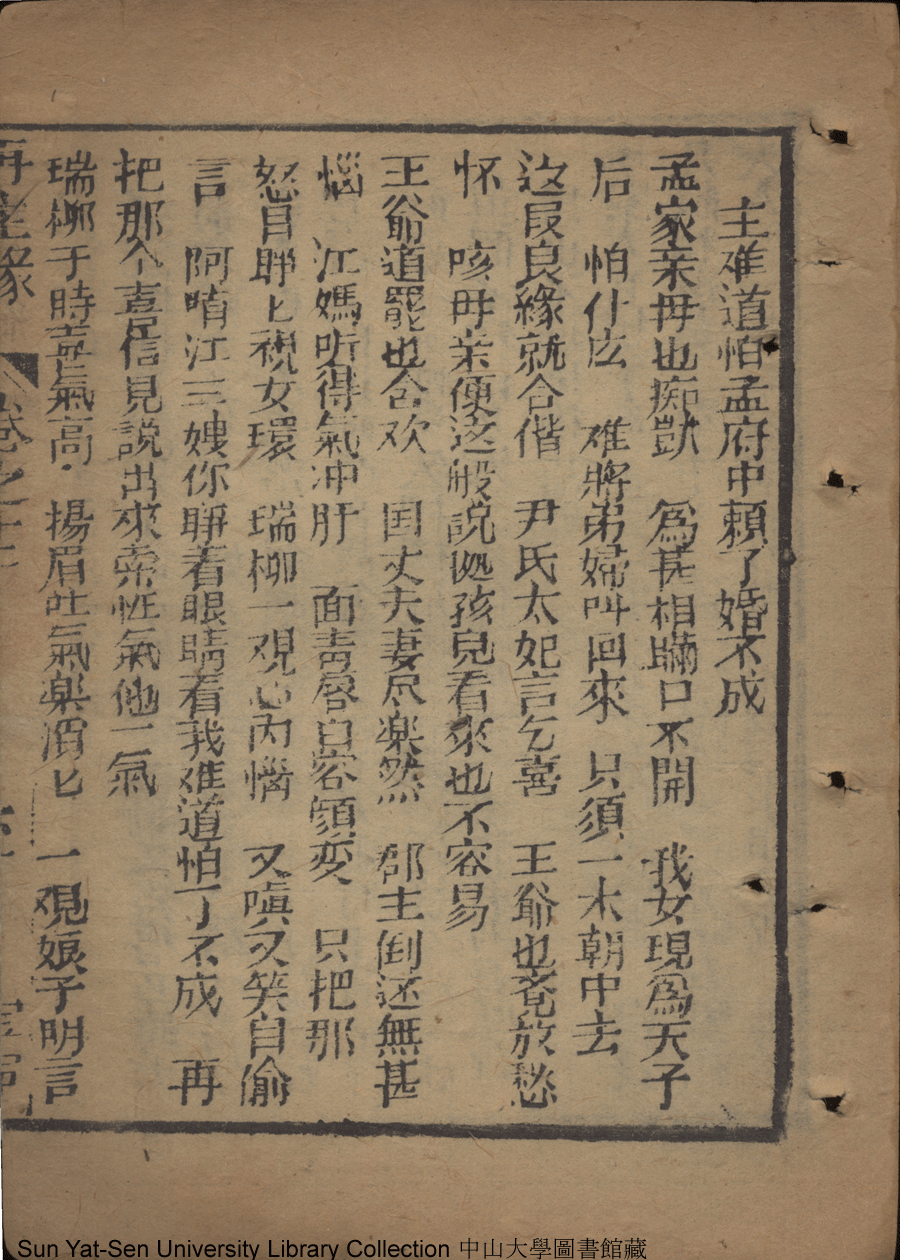 主难道怕孟府中頼了婚不成
孟家亲母也痴獃　為甚相瞞口不開　我女現爲天子
后　怕什庅　难將弟婦叫回來　只須一木朝中去
这叚良緣就合偕　尹氏太妃言乞喜　王爺也觉放愁
怀　咳母亲便这般説拠孩兒看來也不容易
王爺道罷也合欢　国丈夫妻尽楽然　郡主倒还無甚
惱　江媽听得氣冲肝　面青唇白容顔変　只把那
怒目睜匕視女環　瑞柳一观心内惱　又嗔又笑自偷
言　阿唷江三嫂你睜着眼睛看我难道怕了不成　再
把那个喜信見説出來索性氣他一氣
瑞柳于時喜氣高　揚眉吐氣楽滔匕　一观娘子明言
再生緣　卷之十
Sun Yat-Sen University Library Collection 中山大學圖書館藏